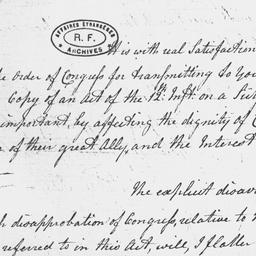 AFFAIRES ÉTRANGÈRES
R. F.
ARCHIVES
is with real Satisfaction
order of Congress for transmitting to You
Copy of an Act of the 12th Inst. on a
important, by affecting the dignity of
of their great Ally, and the Interest
The explicit disavow
disapprobation of Congress, relative to
referred to in this Act, will, I flatter